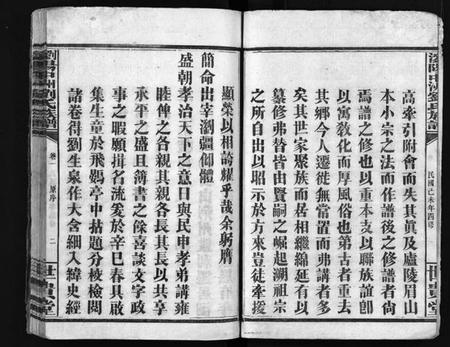 瀏陽中洲劉氏族譜
民國己未年四修
世貴堂
高牽引附會而失其眞及廬陵眉山
本小宗之法而作譜後之修譜者尙
焉譜之修也以重本支以聯族誼卽
以寓敎化而厚風俗也第古者重去
其鄉今人遷徙無當置而弗講者多
矣其世家聚族而居相繼綿延有以
纂修弗替皆由賢嗣之崛起溯祖宗
之所自出以昭示於方來豈徒牽援
顯榮以相誇耀乎哉余躬膺
簡命出宰瀏疆仰體
盛朝孝治天下之意日與民申孝弟講雍
睦俾之各親其親各長其長以共享
承平之盛且簿書之餘喜談文字政
事之暇願揖名流爰於辛巳春具啟
集生童於飛鷃亭中拈題分棱檢閱
諸卷得劉生泉作大含細入緯史經
瀏陽中洲劉氏族譜
卷一
原序
二
世貴堂